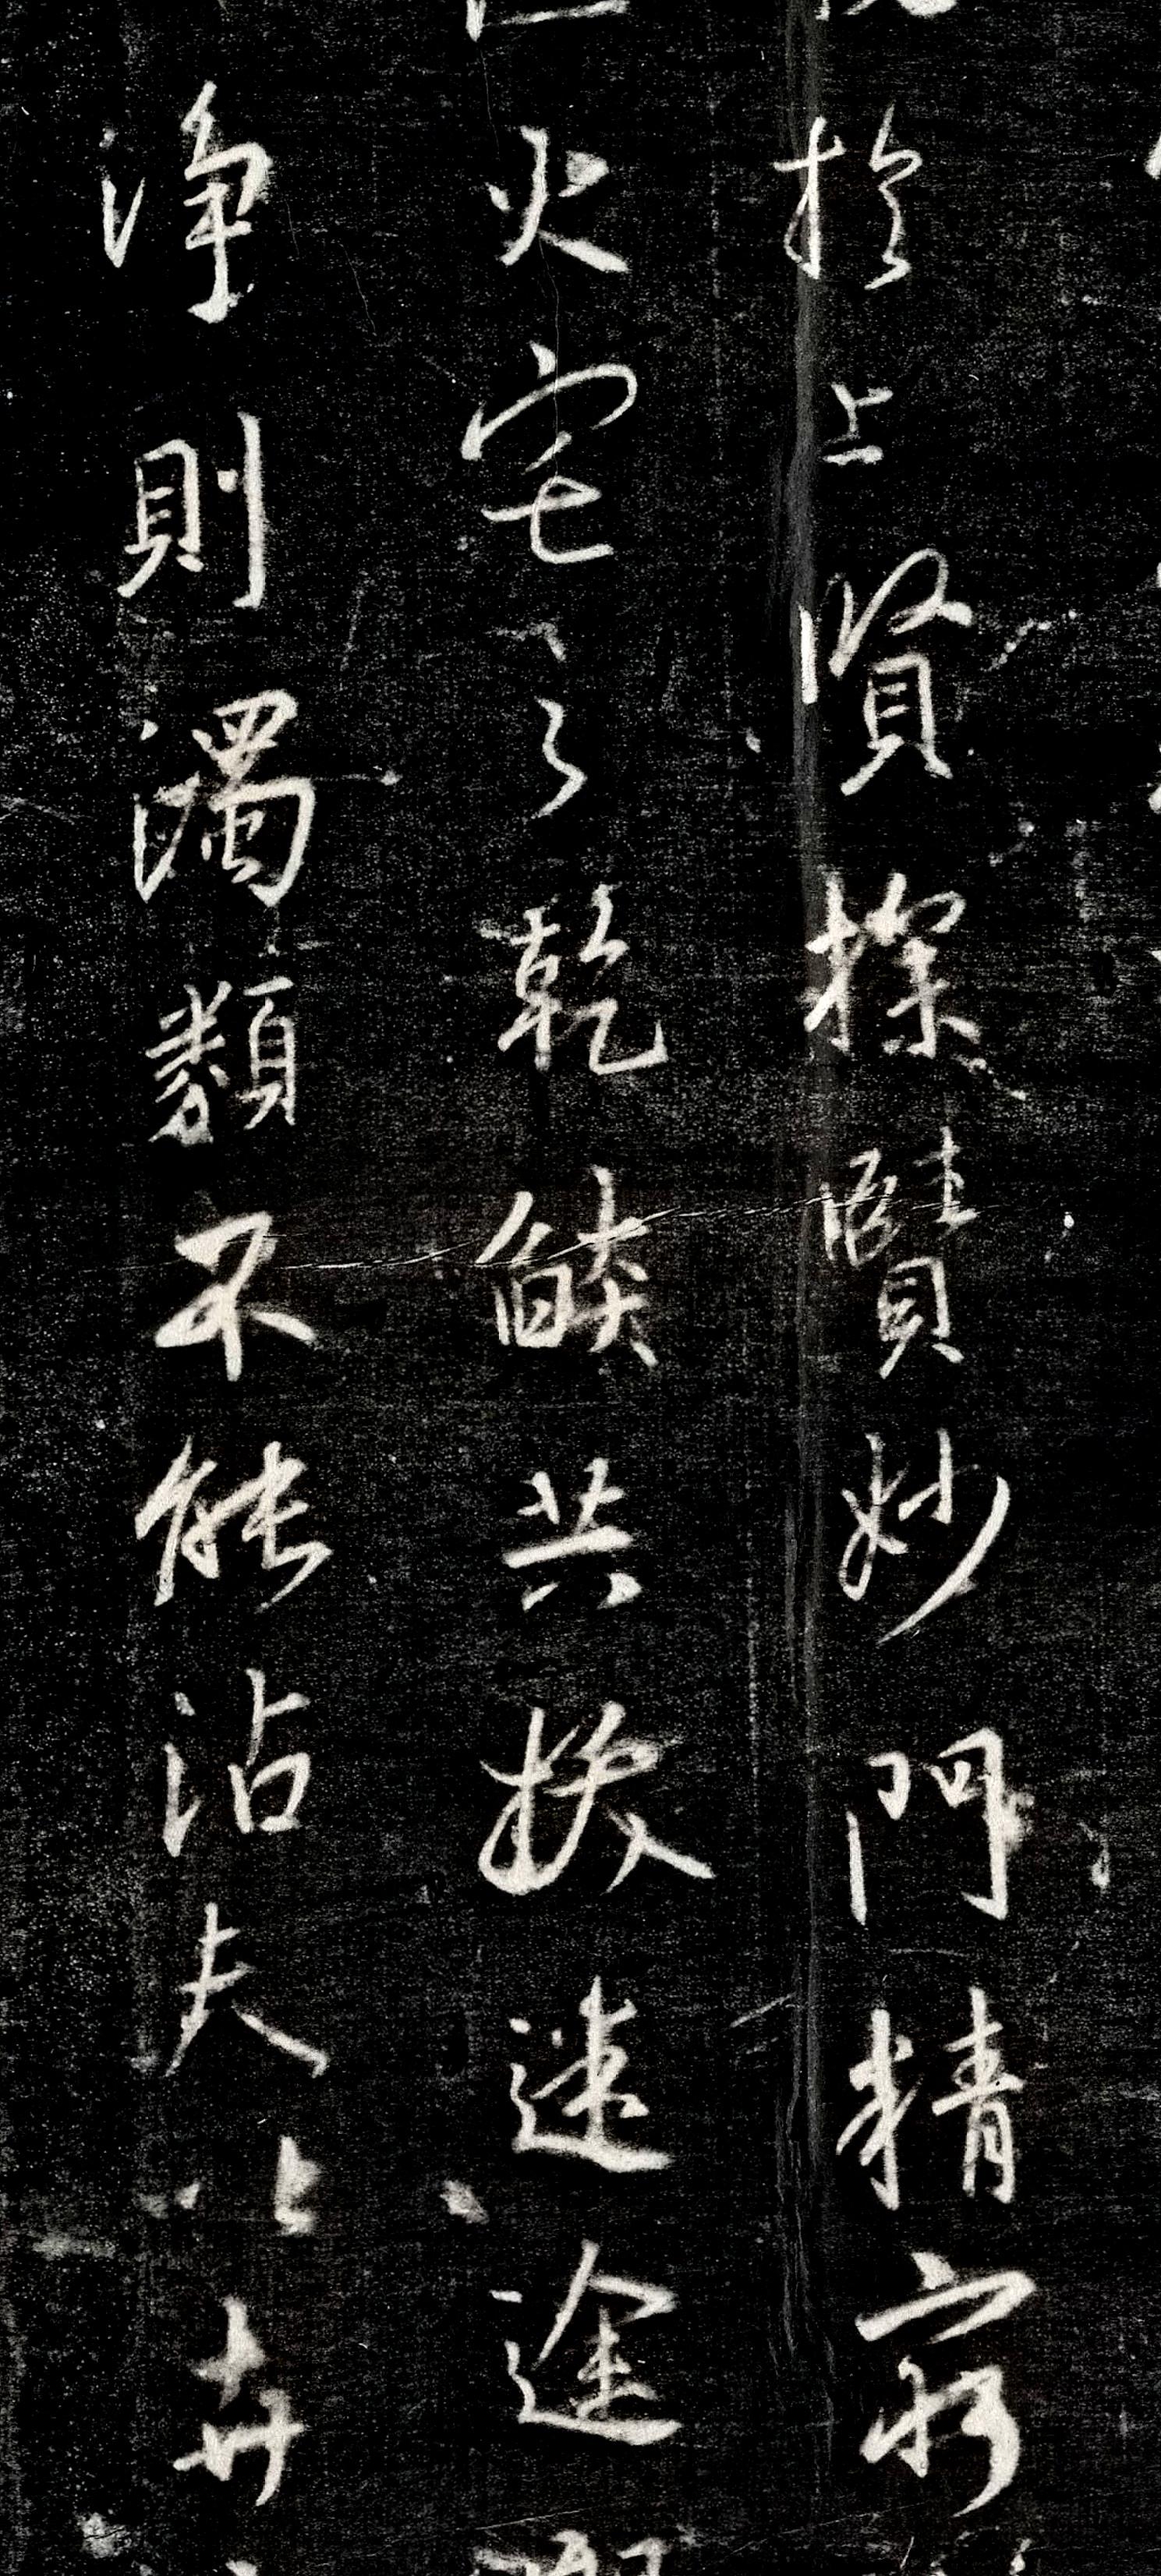 於上賢探賾妙門精窮
火宅之乾燄共拔迷途
淨則濁類不能沾夫以卉